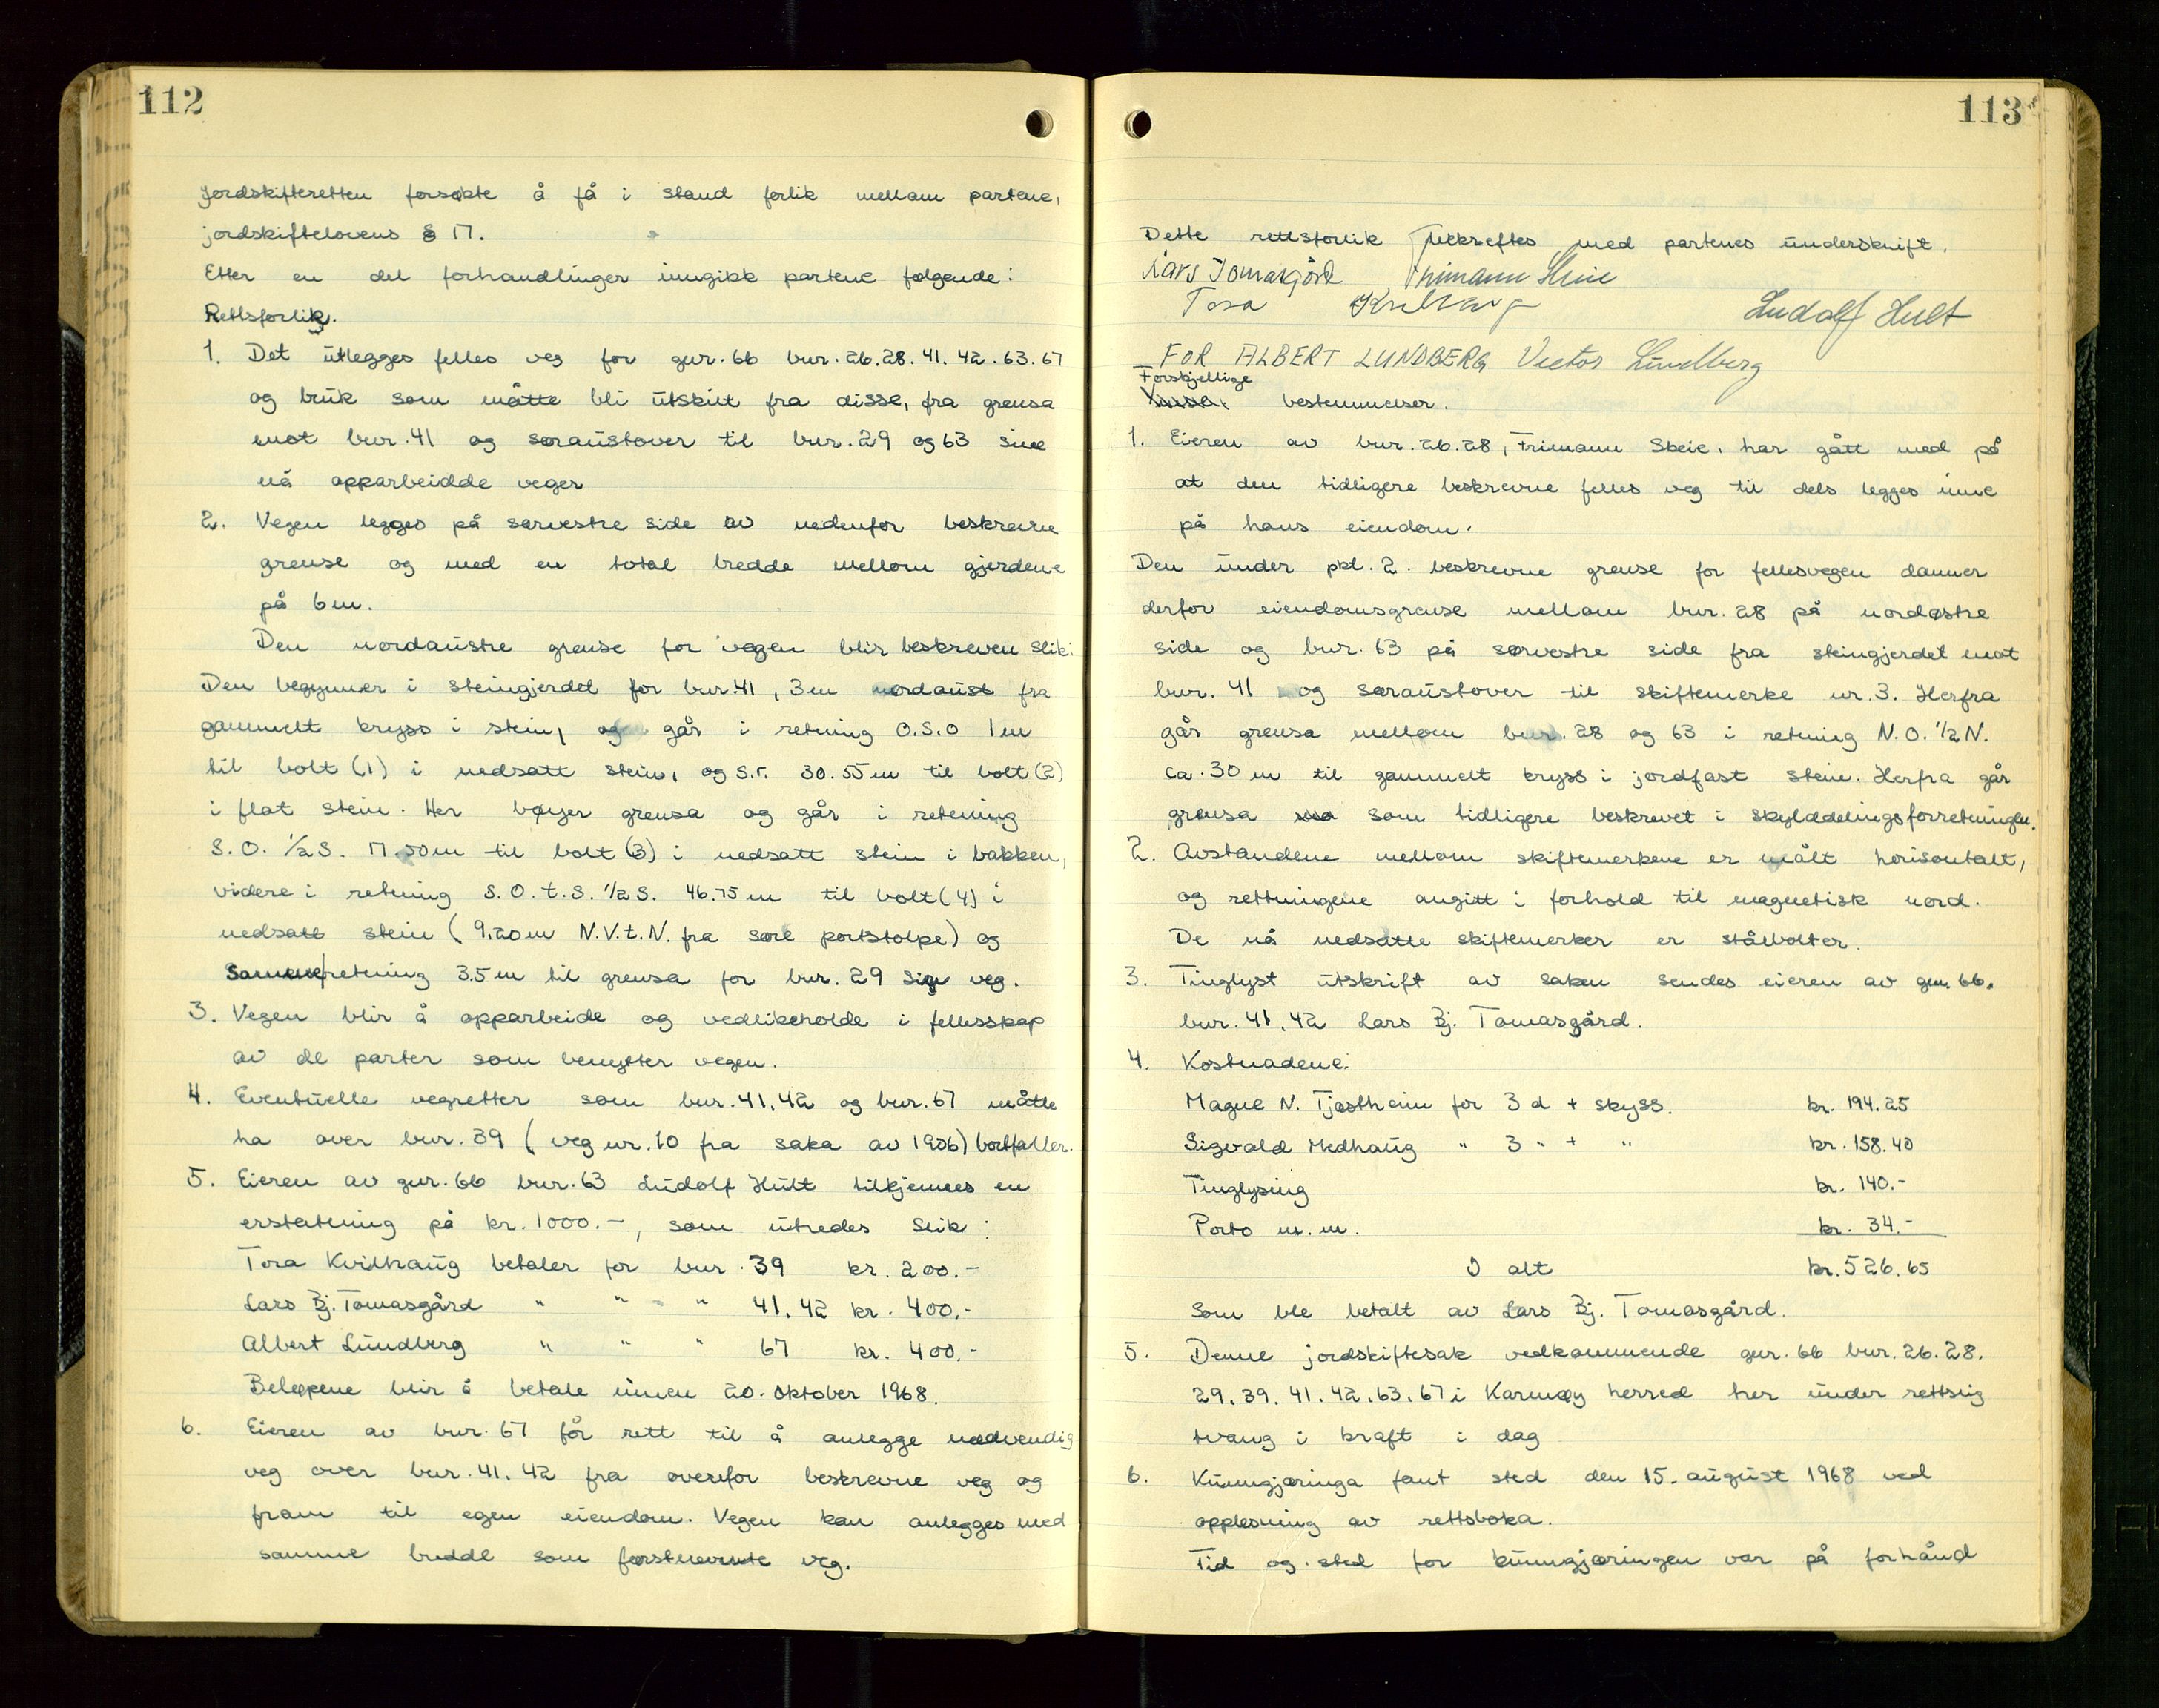 112
Jordskifteretten forsøkte å få i stand forlik mellom partene,
jordskiftelovens § 17.
Etter en del forhandlinger inngikk partene følgende:
Rettsforlik.
1. Det utlegges felles veg for gnr. 66 bnr. 26. 28. 41. 42. 63. 67
og bruk som måtte bli utskilt fra disse, fra grensa
mot bnr. 41 og søraustover til bnr. 29 og 63 sine
nå opparbeidde veger
2. Vegen legges på sørvestre side av nedenfor beskrevne
grense og med en total bredde mellom gjerdene
på 6 m.
Den nordaustre grense for vegen blir beskreven slik:
Den begynner i steingjerdet for bnr. 41, 3 m nordaust fra
gammelt kryss i stein, og går i retning O.S.O 1 m
til bolt (1) i nedsatt stein, og s.r. 30.55 m til bolt (2)
i flat stein. Her bøyer grensa og går i retning
S.O. 1/2 S. 17.50 m til bolt (3) i nedsatt stein i bakken,
videre i retning S.O.t.S. 1/2 S. 46.75 m til bolt (4) i
nedsatt stein (9.20 m N.V.t.N. fra søre portstolpe) og
samme retning 3.5 m til grensa for bnr. 29 sin veg.
3. Vegen blir å opparbeide og vedlikeholde i fellesskap
av de parter som benytter vegen.
4. Eventuelle vegretter som bnr. 41, 42 og bnr. 67 måtte
ha over bnr. 39 (veg nr. 10 fra saka av 1906) bortfaller.
5. Eieren av gnr. 66 bnr. 63 Ludolf Hult tilkjennes en
erstatning på kr. 1000.-, som utredes slik:
Tora Kvilhaug betaler for bnr. 39 kr. 200.-
Lars Bj. Tomasgård " " " 41. 42 kr. 400.-
Albert Lundberg " " " 67 kr. 400.-
Beløpene blir å betale innen 20. oktober 1968.
6. Eieren av bnr. 67 får rett til å anlegge nødvendig
veg over bnr. 41. 42 fra ovenfor beskrevne veg og
fram til egen eiendom. Vegen kan anlegges med
samme bredde som førstnevnte veg.
113
Dette rettsforlik bekreftes med partenes underskrift.
Lars Tomasgård Frimann Skeie
Tora Kvilhaug Ludolf Hult
FOR ALBERT LUNDBERG Victor Lundberg
Forskjellige
bestemmelser.
1. Eieren av bnr. 26. 28, Frimann Skeie, har gått med på
at den tidligere beskrevne felles veg til dels legges inne
på hans eiendom.
Den under pkt. 2. beskrevne grense for fellesvegen danner
derfor eiendomsgrense mellom bnr. 28 på nordøstre
side og bnr. 63 på sørvestre side fra steingjerdet mot
bnr. 41 og søraustover til skiftemerke nr. 3. Herfra
går grensa mellom bnr. 28 og 63 i retning N.O. 1/2 N.
ca. 30 m til gammelt kryss i jordfast stein. Herfra går
grensa som tidligere beskrevet i skylddelingsforretningen.
2. Avstandene mellom skiftemerkene er målt horisontalt,
og rettningene angitt i forhold til magnetisk nord.
De nå nedsatte skiftemerker er stålbolter.
3. Tinglyst utskrift av saken sendes eieren av gnr. 66.
bnr. 41, 42 Lars Bj. Tomasgård.
4. Kostnadene:
Magne N. Tjøstheim for 3 d + skyss. kr. 194.25
Sigvald Medhaug " 3 " + " kr. 158.40
Tinglysing kr. 140.-
Porto m.m. kr. 34.-
I alt kr. 526.65
Som ble betalt av Lars Bj. Tomasgård.
5. Denne jordskiftesak vedkommende gnr. 66 bnr. 26. 28.
29. 39. 41. 42. 63. 67 i Karmøy herred trer under rettslig
tvang i kraft i dag
6. Kunngjøringa fant sted den 15. august 1968 ved
opplesning av rettsboka.
Tid og sted for kunngjøringen var på forhånd